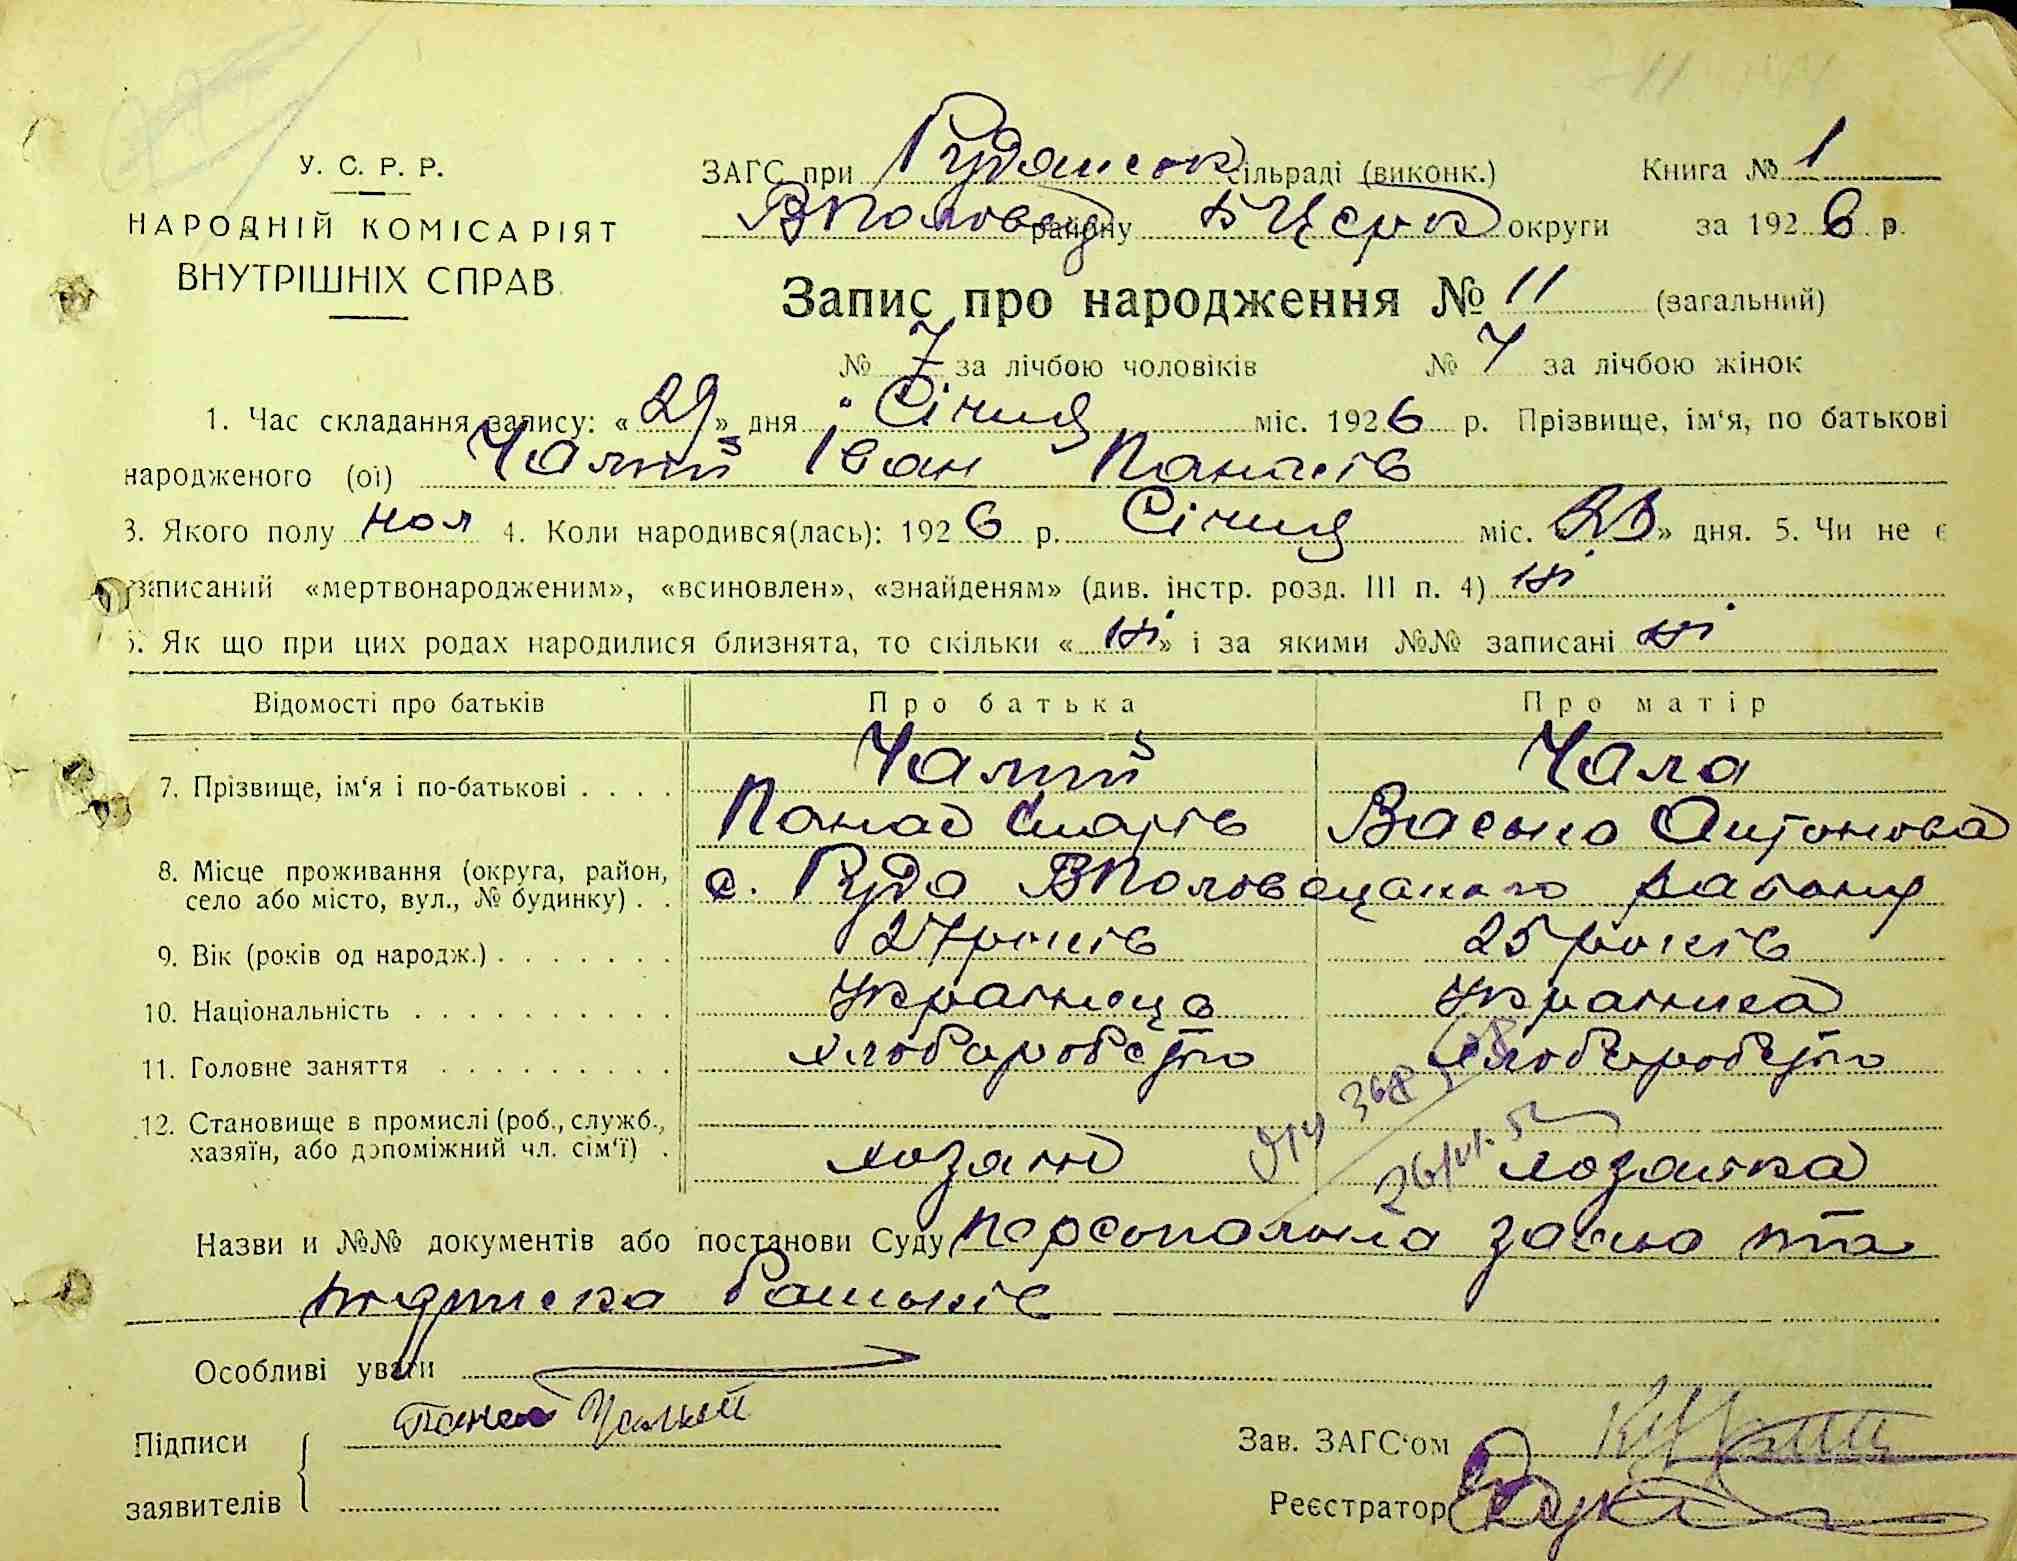 У. С. Р. Р.
НАРОДНІЙ КОМІСАРІЯТ
ВНУТРІШНІХ СПРАВ
ЗАГС при Рудянськ сільраді (виконк.) Книга № 1
ВПоловец району БЦерк округи за 1926 р.
Запис про народження № 11 (загальний)
№ 7 за лічбою чоловіків № 4 за лічбою жінок
1. Час складання запису: «29» дня Січня міс. 1926 р. Прізвище, ім'я, по батькові
народженого (ої) Чалий Іван Панасів
3. Якого полу чол 4. Коли народився(лась): 1926 р. Січня міс. «23» дня. 5. Чи не є
записаний «мертвонародженим», «всиновлен», «знайденям» (див. інстр. розд. III п. 4) ні
6. Як що при цих родах народилися близнята, то скільки «ні» і за якими №№ записані ні
Відомості про батьків Про батька Про матір
7. Прізвище, ім'я і по-батькові . . . . Чалий Чала
Панас Васька Антонова
8. Місце проживання (округа, район,
село або місто, вул., № будинку) . . с. Руда ВПоловецького району
9. Вік (років од народж.) . . . . . . . 27 років 25 років
10. Національність . . . . . . . . . . українець українка
11. Головне заняття . . . . . . . . . хлоборобство хлоборобство
12. Становище в промислі (роб., служб.,
хазяїн, або допоміжний чл. сім'ї) . хозяїн хозяйка
Назви и №№ документів або постанови Суду персональна заява та
підписка батьків
Особливі уваги
Підписи Панас Чалий
заявителів
Зав. ЗАГС'ом
Реєстратор